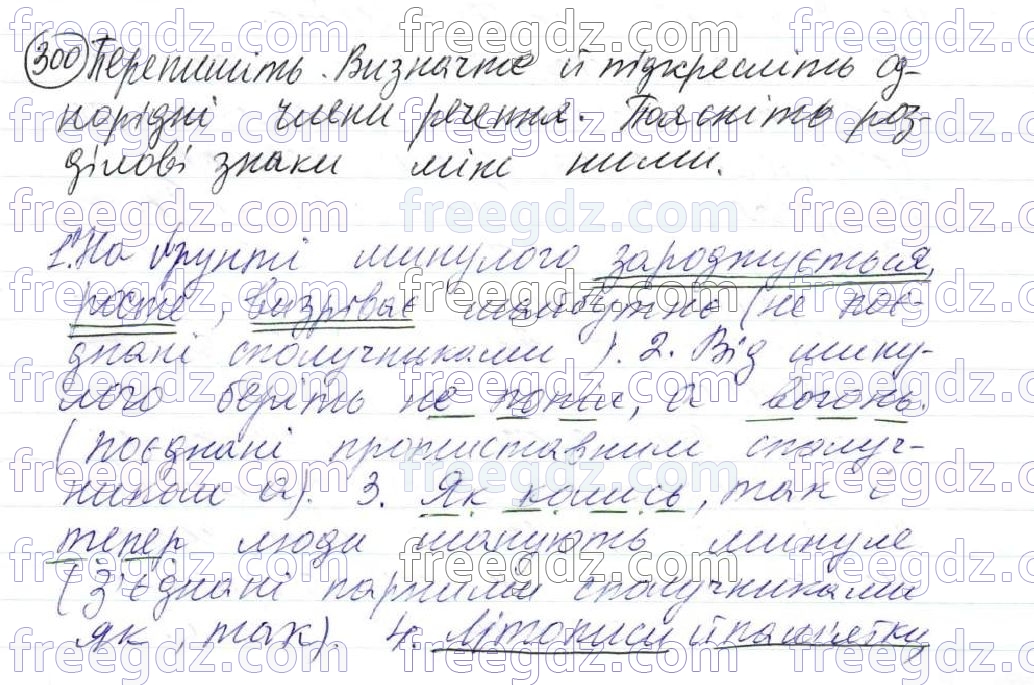 300 Перепишіть. Визначте й підкресліть од-
норідні члени речення. Поясніть роз-
ділові знаки між ними.
1. На ґрунті минулого зароджується,
росте, визріває майбутнє (не поє-
днані сполучниками). 2. Від мину-
лого беріть не попіл, а вогонь.
(поєднані протиставним сполуч-
ником а). 3. Як колись, так і
тепер люди шанують минуле
(з'єднані парними сполучниками
як, так). 4. Літописи й пам'ятки